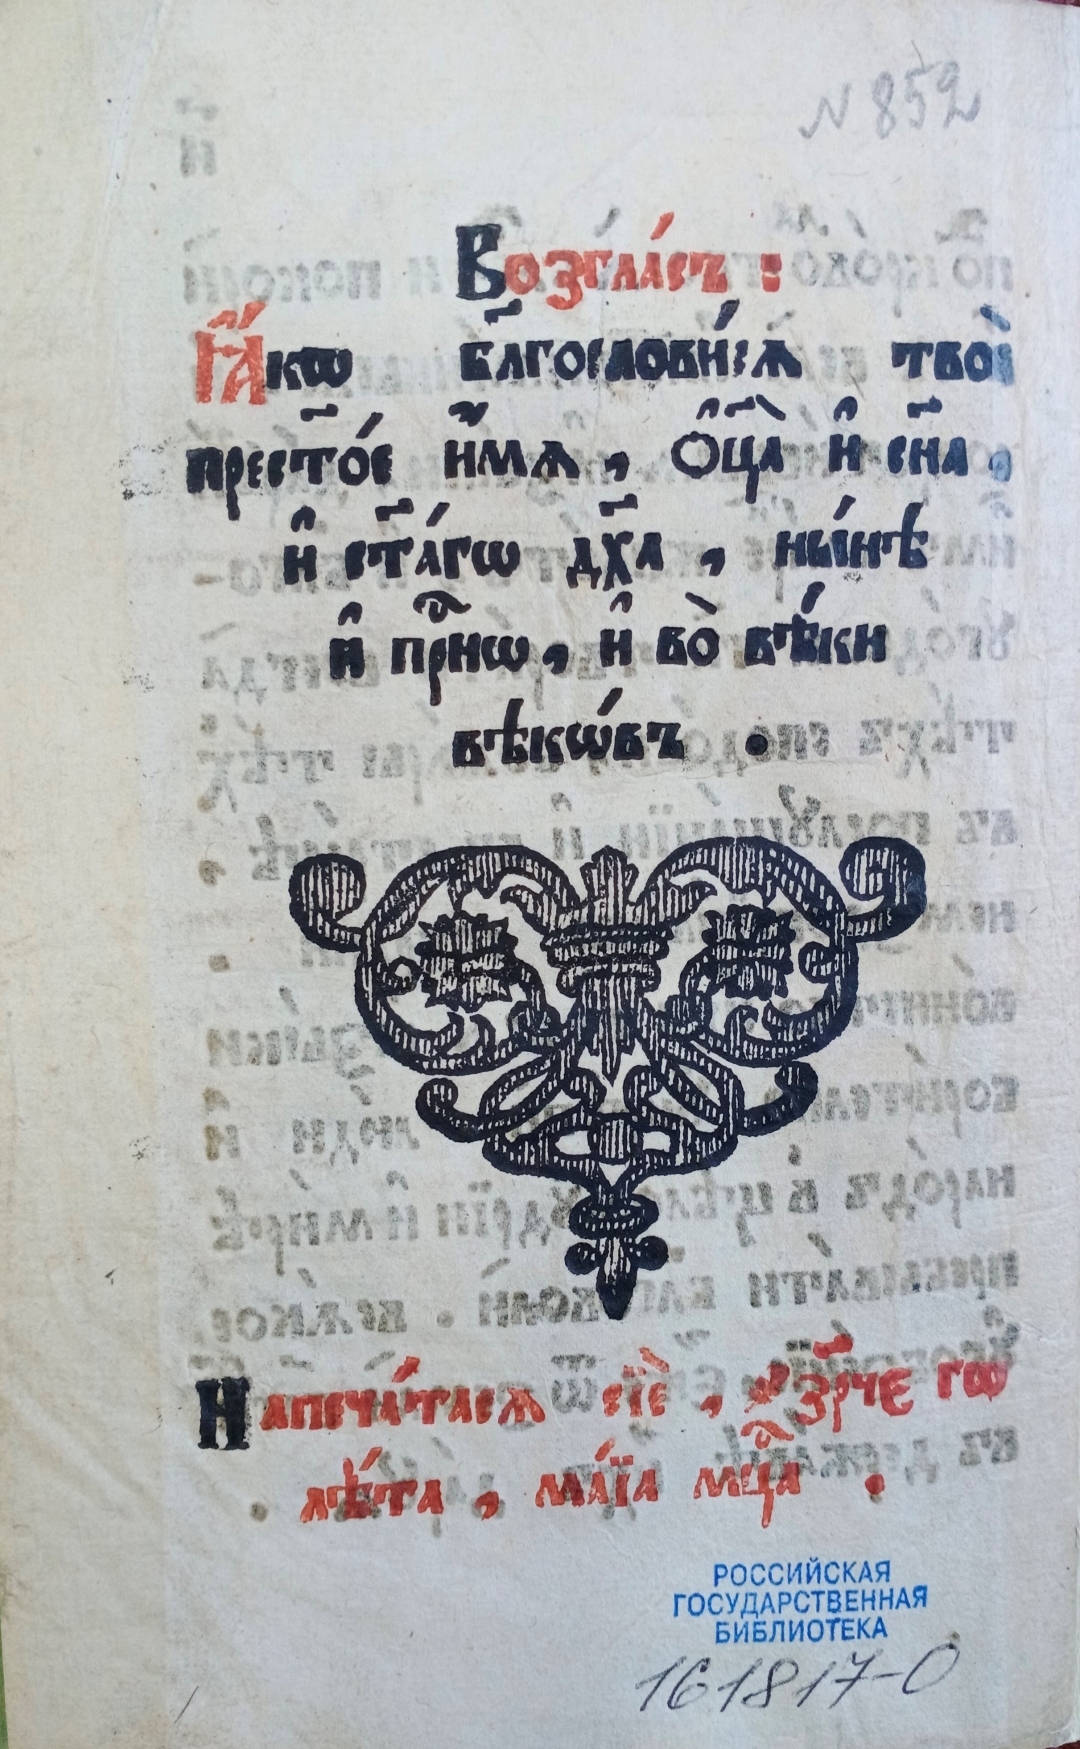 N 852
Возгла́съ :
Ꙗ҆́кѡ бл҃гослови́сѧ твоѐ
прест҃о́е и҆́мѧ , ѻ҆ц҃а̀ и҆ сн҃а ,
и҆ ст҃а́гѡ дх҃а , ны́нѣ
и҆ прⷭ҇нѡ , и҆ во̀ вѣ́ки
вѣкѡ́въ .
Напеча́тасѧ сїѐ , ҂зрч҃е гѡ
лѣ́та , ма́їа мцⷭ҇а .
РОССИЙСКАЯ
ГОСУДАРСТВЕННАЯ
БИБЛИОТЕКА
161817-О